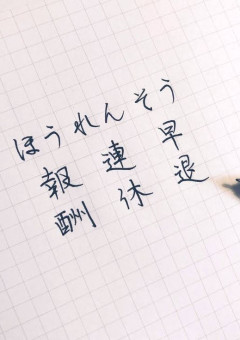 ほうれんそう
報連早
酬休退